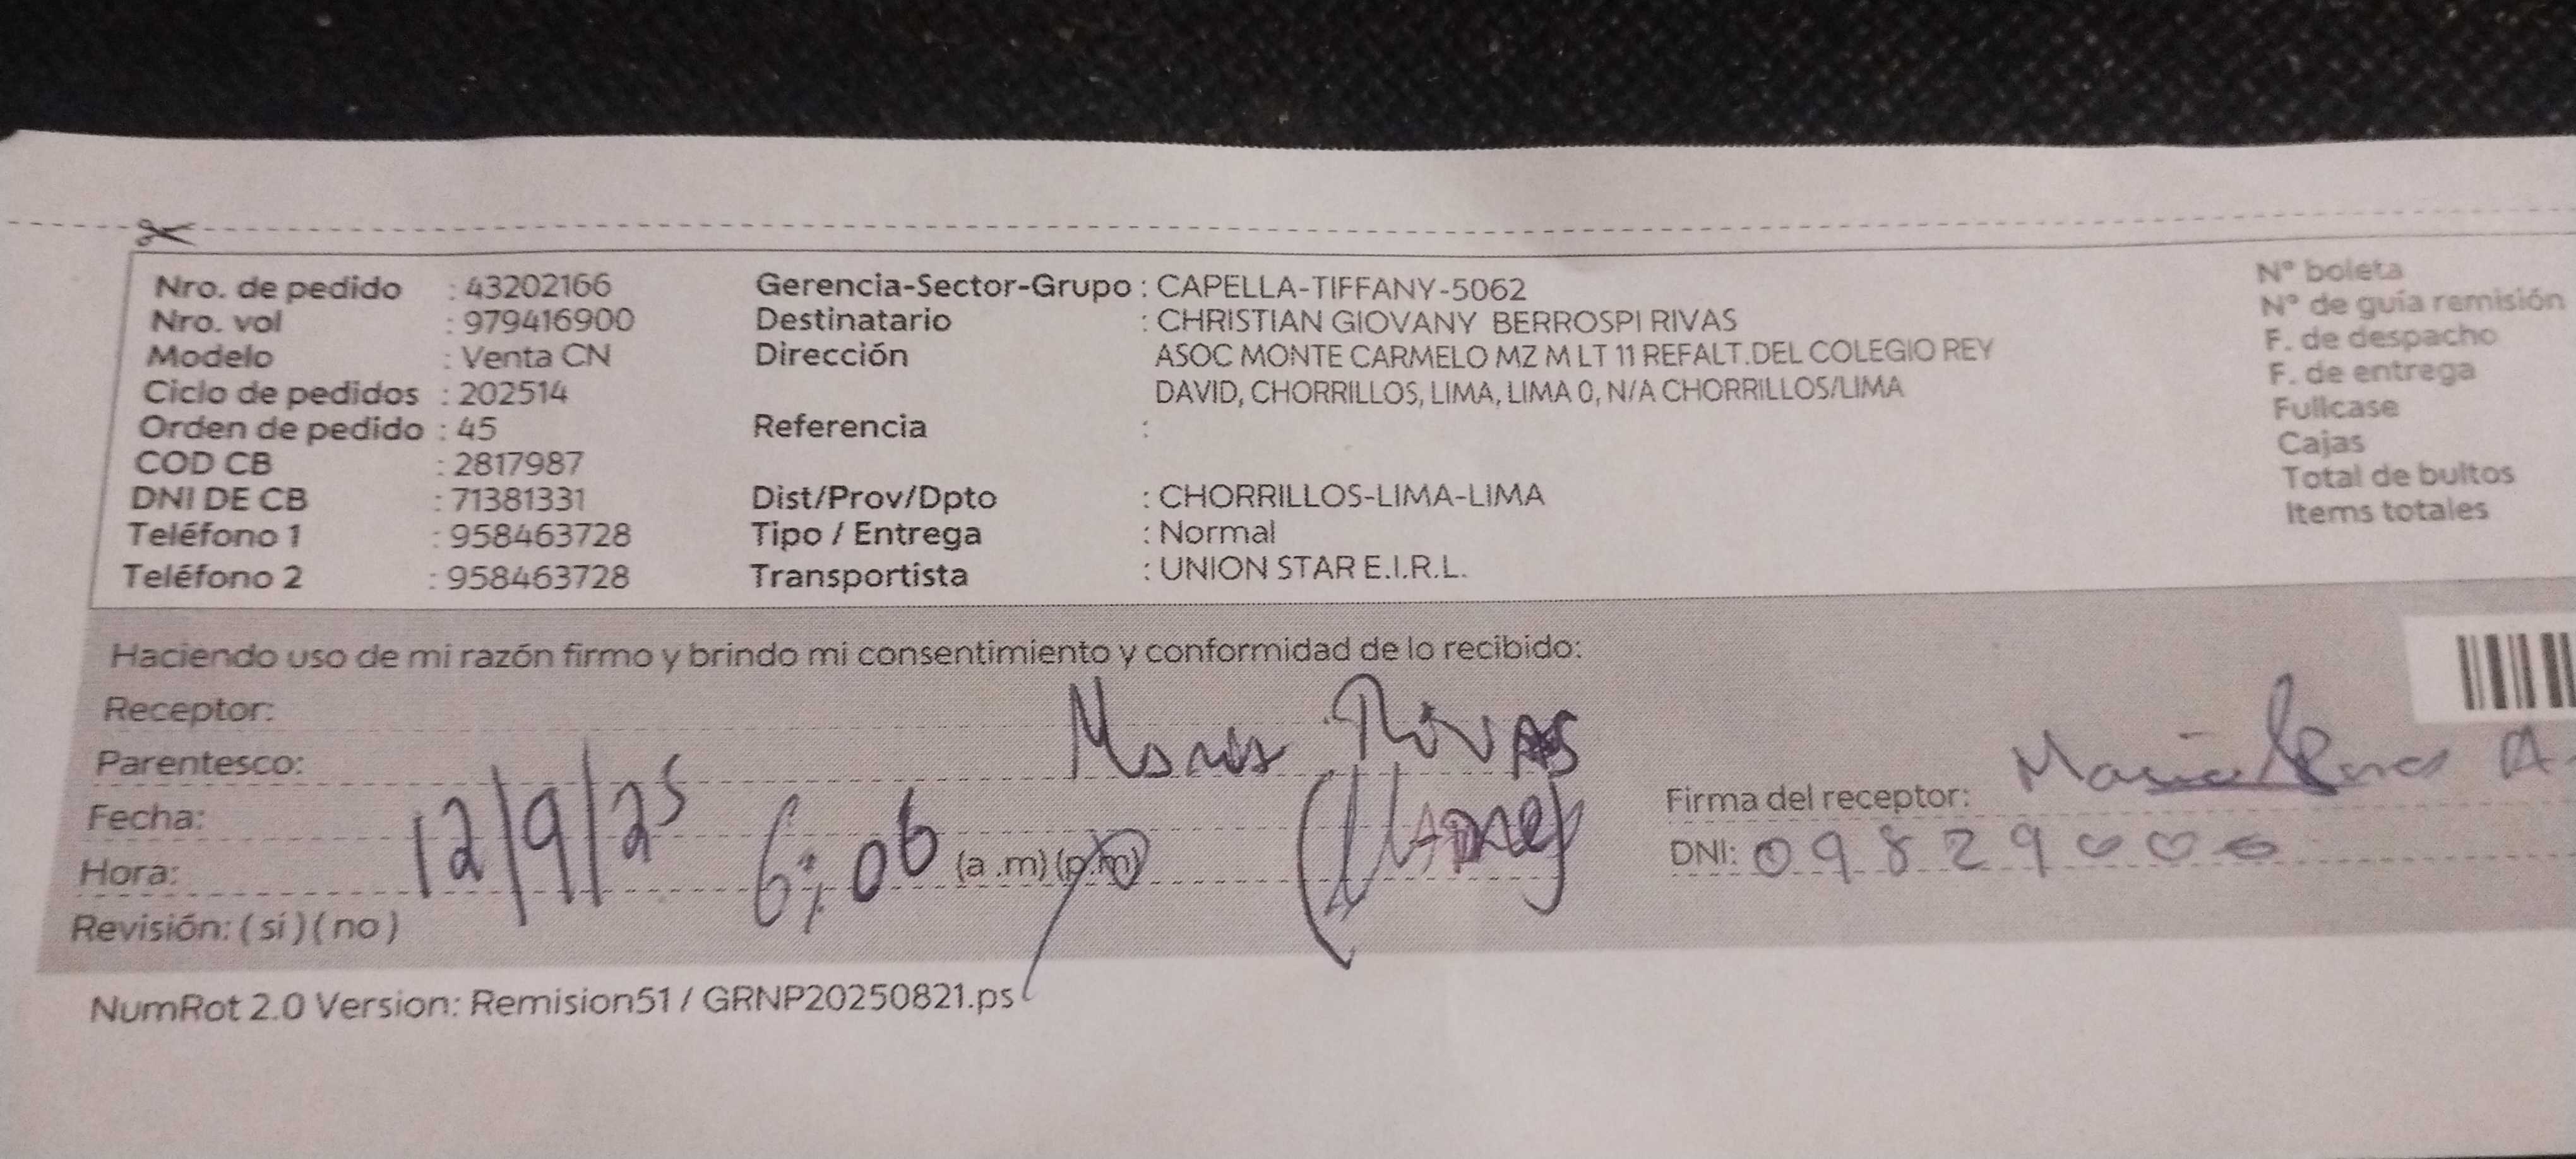 Nro. de pedido : 43202166 Gerencia-Sector-Grupo : CAPELLA-TIFFANY-5062 N° boleta
Nro. vol : 979416900 Destinatario : CHRISTIAN GIOVANY BERROSPI RIVAS N° de guía remisión
Modelo : Venta CN Dirección ASOC MONTE CARMELO MZ M LT 11 REFALT.DEL COLEGIO REY F. de despacho
Ciclo de pedidos : 202514 DAVID, CHORRILLOS, LIMA, LIMA 0, N/A CHORRILLOS/LIMA F. de entrega
Orden de pedido : 45 Referencia : Fullcase
COD CB : 2817987 Cajas
DNI DE CB : 71381331 Dist/Prov/Dpto : CHORRILLOS-LIMA-LIMA Total de bultos
Teléfono 1 : 958463728 Tipo / Entrega : Normal Items totales
Teléfono 2 : 958463728 Transportista : UNION STAR E.I.R.L.
Haciendo uso de mi razón firmo y brindo mi consentimiento y conformidad de lo recibido:
Receptor: Rivas
Parentesco:
Fecha: 12/9/25 Firma del receptor: Maria
Hora: 6:06 (a .m) (p.m) DNI: 09829000
Revisión: ( sí ) ( no )
NumRot 2.0 Version: Remision51 / GRNP20250821.ps